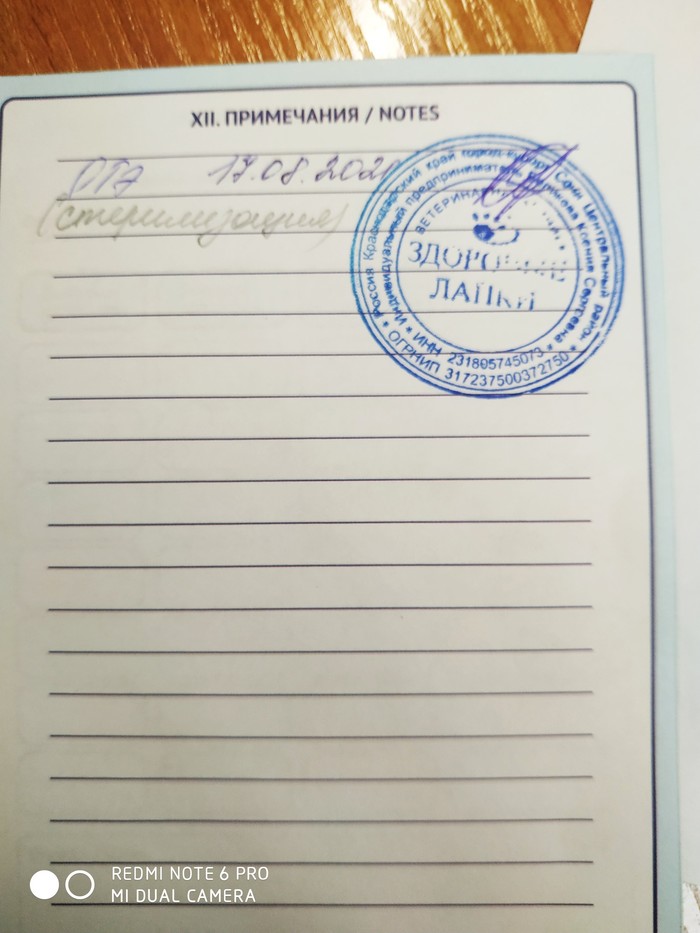 XII. ПРИМЕЧАНИЯ / NOTES
ОГЭ 17.08.2020
(стерилизация)
Россия Краснодарский край город-курорт Сочи Центральный район
Индивидуальный предприниматель Ксения Сергеевна
ВЕТЕРИНА
ЗДОРОВЫЕ
ЛАПКИ
ИНН 231805745073
ОГРНИП 317237500372750
REDMI NOTE 6 PRO
MI DUAL CAMERA